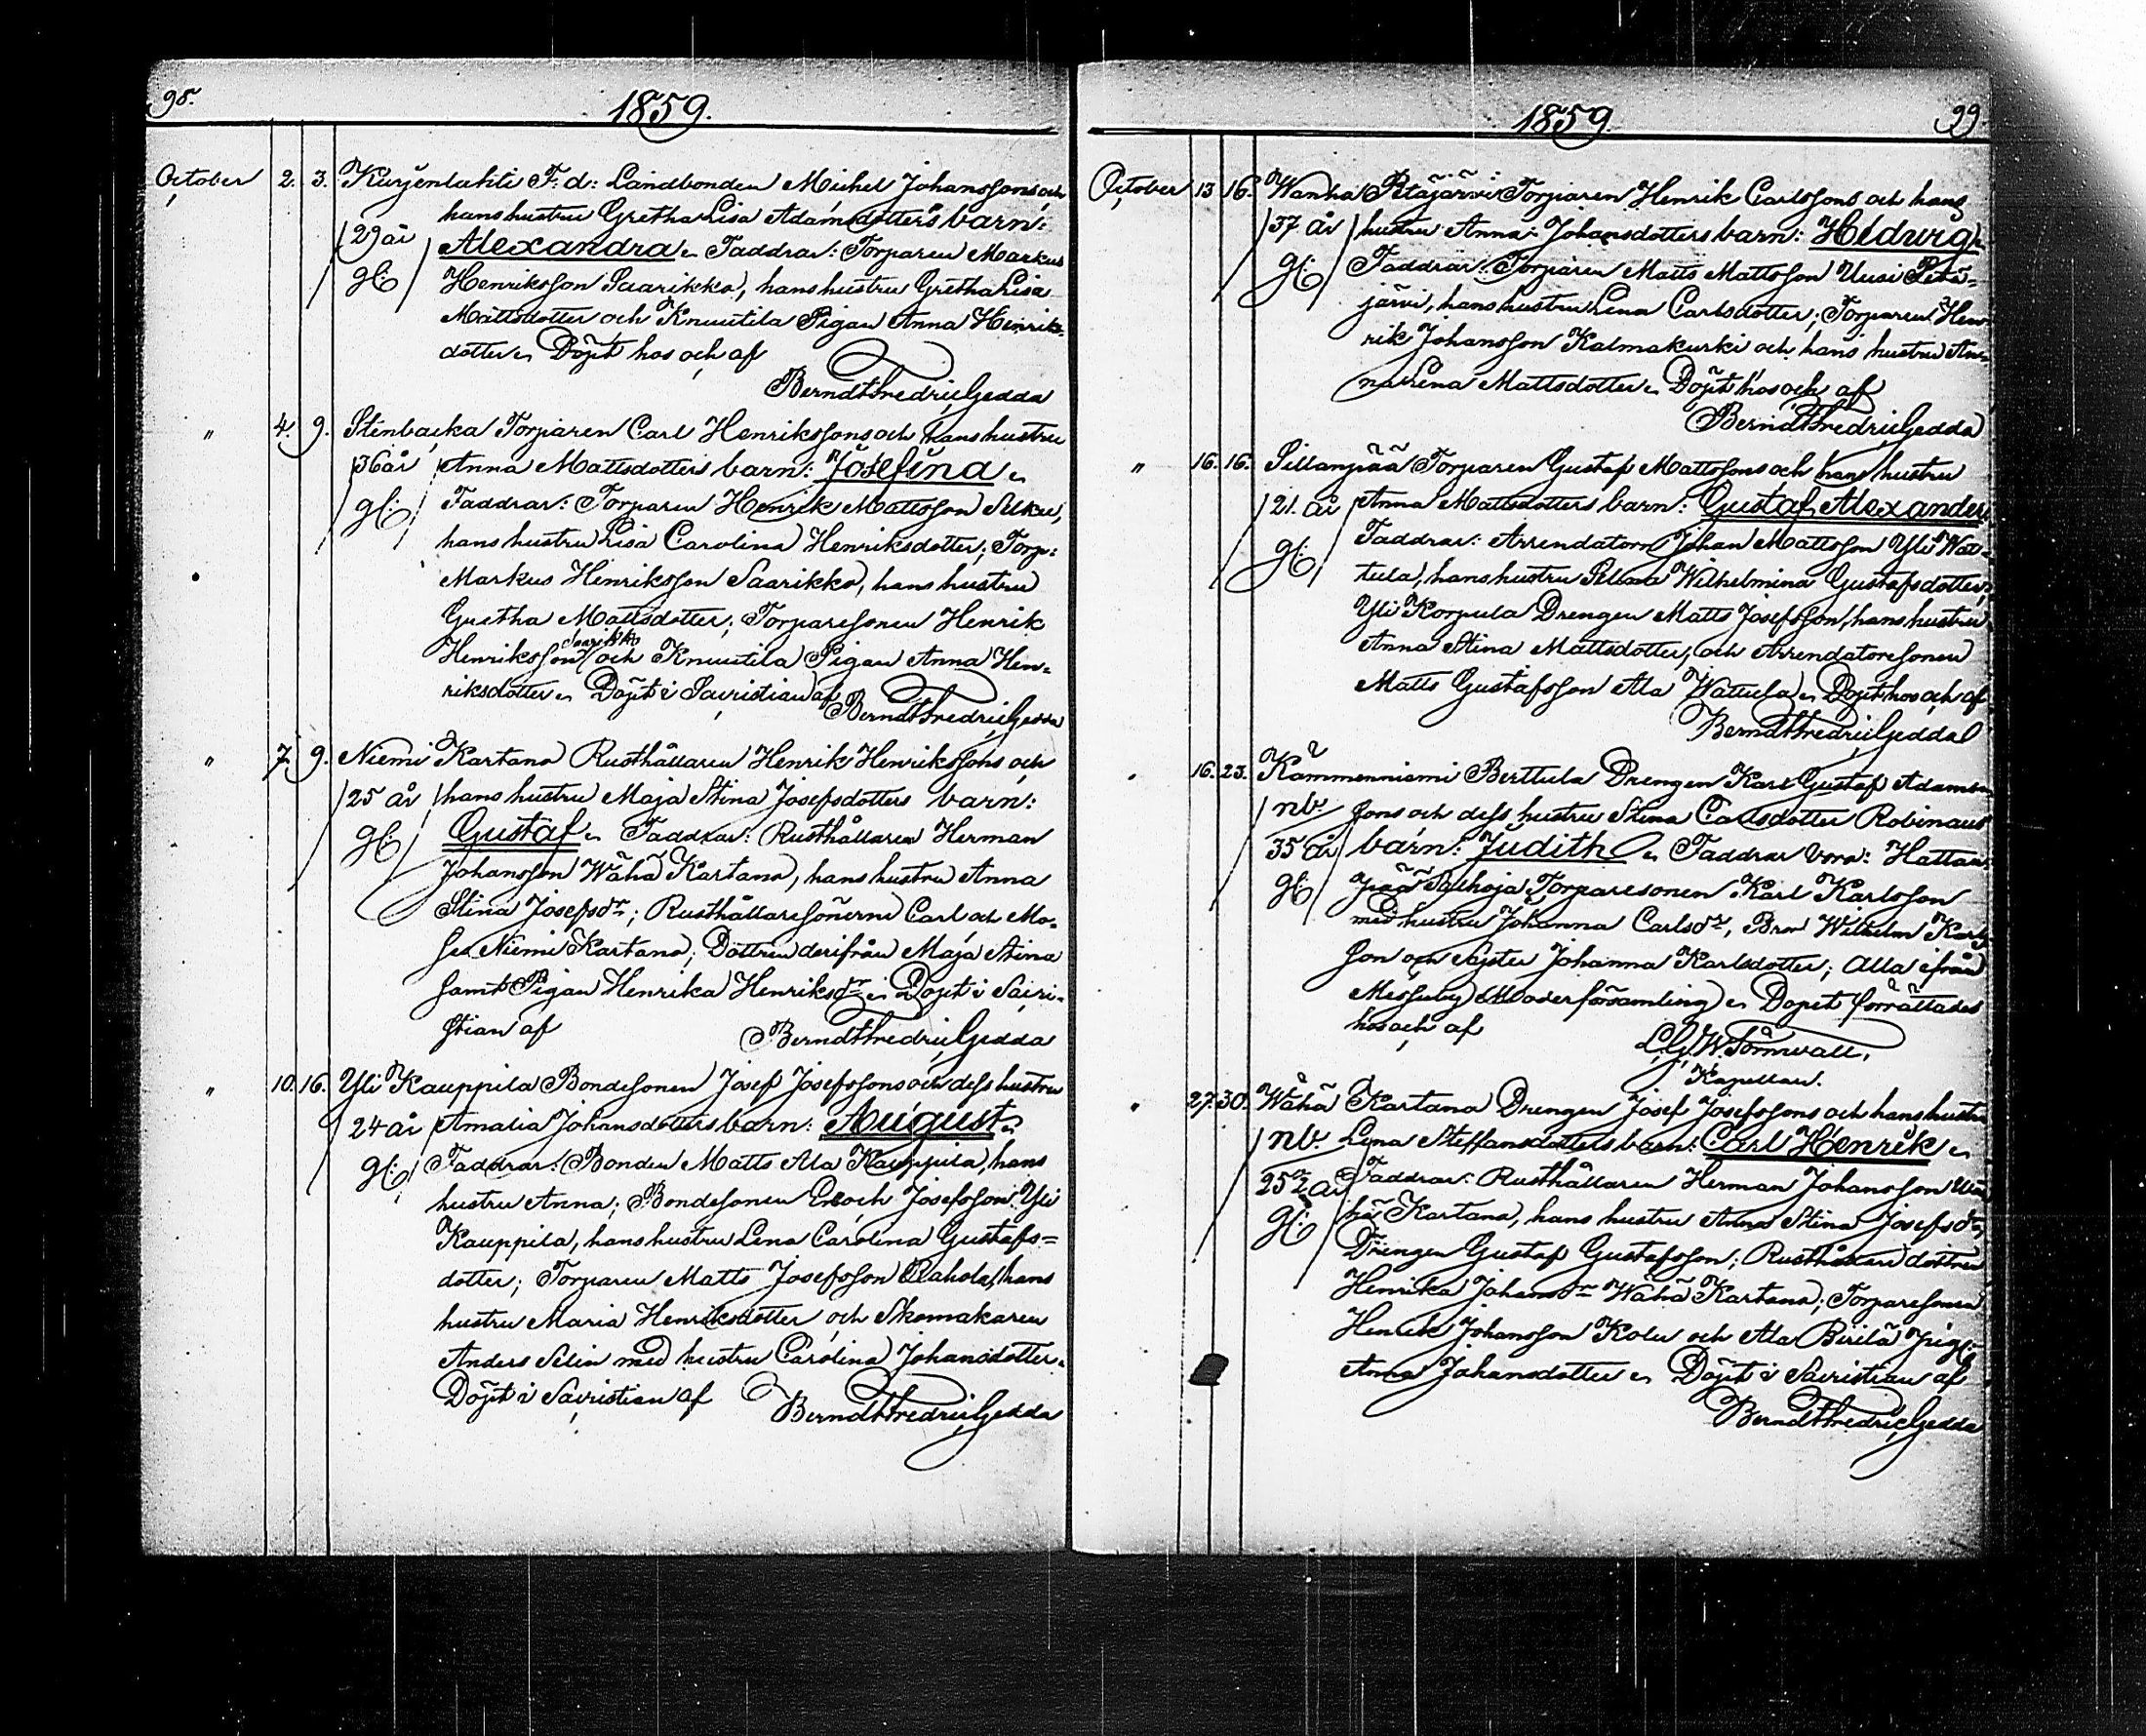 98.
1859.
October 2. 3. Kurjenlahti F. d: Landbonden Michel Johanssons och
hans hustru Greta Lisa Adamsdotters barn:
29 år Alexandra Faddrar: Torparen Markus
gl: Henriksson Saarikko, hans hustru Gretha Lisa
Mattsdotter och Knuutila Pigan Anna Henriks-
dotter Döpt hos och af
Berndt Fredric Gedda
" 4. 9. Stenbacka Torparen Carl Henrikssons och hans hustru
36 år Anna Mattsdotters barn: Josefina
gl: Faddrar: Torparen Henrik Mattsson Silku,
hans hustru Lisa Carolina Henriksdotter; Torp:
Markus Henriksson Saarikko, hans hustru
Gretha Mattsdotter; Torparesonen Henrik
Saarikko
Henriksson och Knuutila Pigan Anna Hen-
riksdotter Döpt i Sacristian af
Berndt Fredric Gedda
" 7. 9. Niemi Kartano Rusthållaren Henrik Henrikssons och
25 år hans hustru Maja Stina Josefsdotters barn:
gl: Gustaf Faddrar: Rusthållaren Herman
Johansson Wähä Kartano, hans hustru Anna
Stina Josefsdr; Rusthållaresönerne Carl och Mo-
ses Niemi Kartano; Dottren derifrån Maja Stina
samt Pigan Henrika Henriksdr Döpt i Sacri-
stian af
Berndt Fredric Gedda
" 10. 16. Yli Kauppila Bondesonen Josef Josefssons och dess hustru
24 år Amalia Johansdotters barn: August
gl: Faddrar: Bonden Matts Ala Kauppila, hans
hustru Anna; Bondesonen Enoch Josefsson Yli
Kauppila, hans hustru Lena Carolina Gustafs=
dotter; Torparen Matts Josefsson Rahola, hans
hustru Maria Henriksdotter och Skomakaren
Anders Selin med hustru Carolina Johansdotter.
Döpt i Sacristian af
Berndt Fredric Gedda
1859
99
October 13 16. Wanha Petäjärvi Torparen Henrik Carlssons och hans
37 år hustru Anna Johansdotters barn: Hedwig
gl: Faddrar: Torparen Matts Mattsson Uusi Petä-
järvi, hans hustru Lena Carlsdotter; Torparen Hen-
rik Johansson Kalmakurki och hans hustru An-
na Lena Mattsdotter Döpt hos och af
Berndt Fredric Gedda
" 16. 16. Sillanpää Torparen Gustaf Mattssons och hans hustru
21. år Anna Mattsdotters barn: Gustaf Alexander
gl: Faddrar: Arrendatorn Johan Mattsson Yli Wat-
tula, hans hustru Wilhelmina Gustafsdotter;
Yli Korpula Drengen Matts Josefsson, hans hustru
Anna Stina Mattsdotter, och Arrendatoresonen
Matts Gustafsson Ala Wattula Döpt hos och af
Berndt Fredric Gedda
" 16. 23. Kämmenniemi Berttula Drengen Karl Gustaf Adams-
nb. sons och dess hustru Stina Carlsdotter Robinaus
35 år barn: Judith Faddrar voro: Hattan-
gl: pää Torparesonen Karl Karlsson
med hustru Johanna Carlsdr, Bron Wilhelm Karls-
son och Syster Johanna Karlsdotter; Alla ifrån
Messuby Moderförsamling Dopet förrättades
hos och af
C. G. W. Törnwall,
Kapellan.
" 27. 30. Wähä Kartano Drengen Josef Josefssons och hans hustru
nb. Lena Steffansdotters barn: Carl Henrik
25 1/2 år Faddrar: Rusthållaren Herman Johansson Wä-
gl: hä Kartano, hans hustru Anna Stina Josefsdr,
Drengen Gustaf Gustafsson; Rusthållare dottren
Henrika Johansdr Wähä Kartano; Torparesonen
Henrik Johansson Kolu och Ala Pirilä pig:
Anna Johansdotter Döpt i Sacristian af
Berndt Fredric Gedda